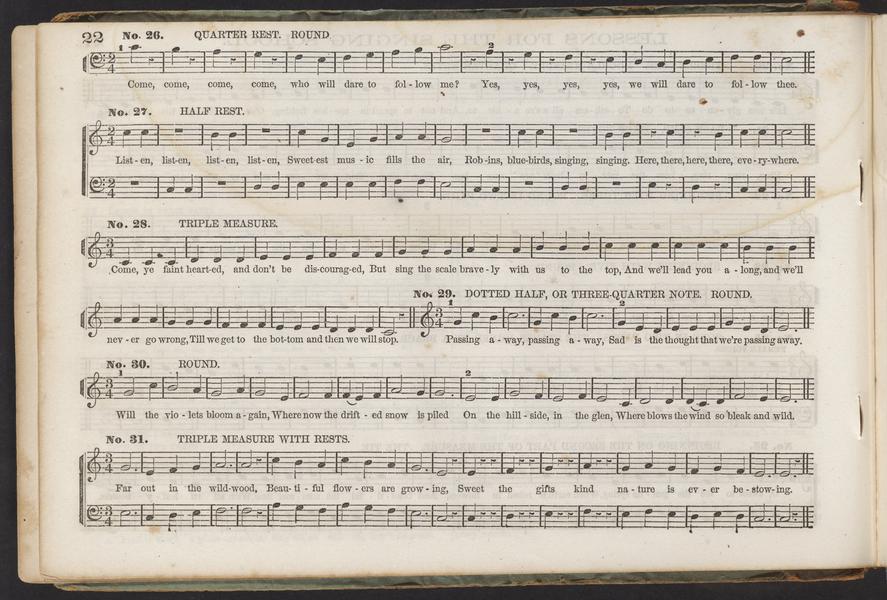 22 No. 26. QUARTER REST. ROUND.
1 2
Come, come, come, come, who will dare to fol - low me? Yes, yes, yes, yes, we will dare to fol - low thee.
No. 27. HALF REST.
List - en, list-en, list - en, list - en, Sweet-est mus - ic fills the air, Rob - ins, blue-birds, singing, singing. Here, there, here, there, eve - ry-where.
No. 28. TRIPLE MEASURE.
Come, ye faint heart-ed, and don't be dis-courag-ed, But sing the scale brave - ly with us to the top, And we'll lead you a - long, and we'll
No. 29. DOTTED HALF, OR THREE-QUARTER NOTE. ROUND.
1 2
nev - er go wrong, Till we get to the bot-tom and then we will stop. Passing a - way, passing a - way, Sad is the thought that we're passing away.
No. 30. ROUND.
1 2
Will the vio - lets bloom a - gain, Where now the drift - ed snow is piled On the hill - side, in the glen, Where blows the wind so bleak and wild.
No. 31. TRIPLE MEASURE WITH RESTS.
Far out in the wild-wood, Beau - ti - ful flow - ers are grow - ing, Sweet the gifts kind na - ture is ev - er be - stow-ing.